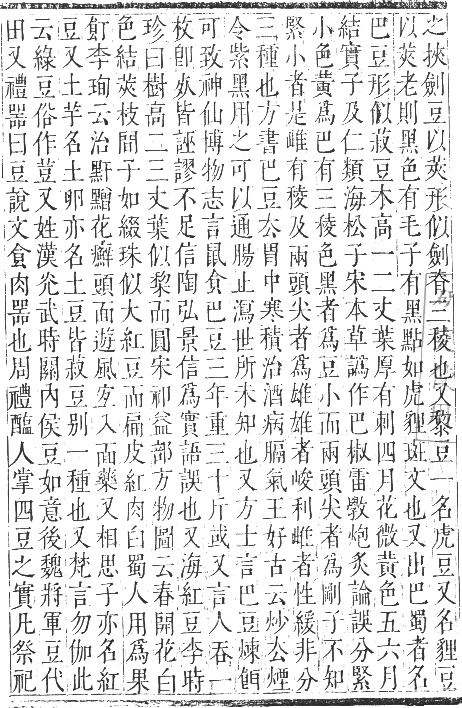 之挾劍豆以莢形似劍脊三稜也又黎豆一名虎豆又名貍豆
以莢老則黑色有毛子有黑點如虎貍斑文也又出巴蜀者名
巴豆形似菽豆木高一二丈葉厚有刺四月花微黃色五六月
結實子及仁類海松子宋本草譌作巴椒雷斅炮炙論誤分緊
小色黃爲巴有三稜色黑者爲豆小而兩頭尖者爲剛子不知
緊小者是雌有稜及兩頭尖者爲雄雄者峻利雌者性緩非分
三種也方書巴豆厺胃中寒積治酒病膈氣王好古云炒厺煙
令紫黑用之可以通腸止瀉世所未知也又方士言巴豆煉餌
可致神仙博物志言鼠食巴豆三年重三十斤或又言人吞一
枚卽𣦸皆誣謬不足信陶弘景信爲實語誤也又海紅豆李時
珍曰樹高二三丈葉似黎而圓宋祁益部方物圖云春開花白
色結莢枝間子如綴珠似大紅豆而扁皮紅肉白蜀人用爲果
飣李珣云治䵟黯花癬頭面遊風宐入面藥又相思子亦名紅
豆又土芋名土卵亦名土豆皆菽豆別一種也又梵言勿伽此
云綠豆俗作荳又姓漢光武時關內侯豆如意後魏將軍豆代
田又禮器曰豆說文食肉器也周禮醢人掌四豆之實凡祭祀